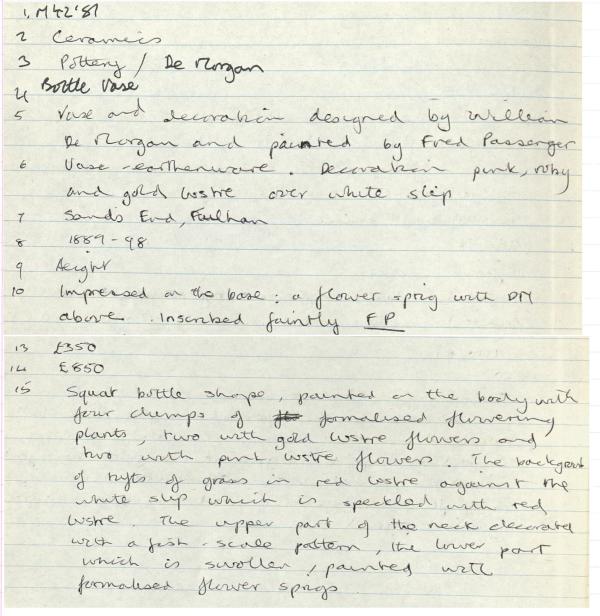 1. M42'81
2 Ceramics
3 Pottery / De Morgan
4 Bottle Vase
5 Vase and decoration designed by William
De Morgan and painted by Fred Passenger
6 Vase - earthenware. Decoration pink, ruby
and gold lustre over white slip
7 Sands End, Fulham
8 1889-98
9 Height
10 Impressed on the base: a flower sprig with DM
above. Inscribed faintly FP
13 £350
14 £850
15 Squat bottle shape, painted on the body with
four clumps of formalised flowering
plants, two with gold lustre flowers and
two with pink lustre flowers. The background
of tufts of grass in red lustre against the
white slip which is speckled with red
lustre. The upper part of the neck decorated
with a fish-scale pattern, the lower part
which is swollen, painted with
formalised flower sprigs